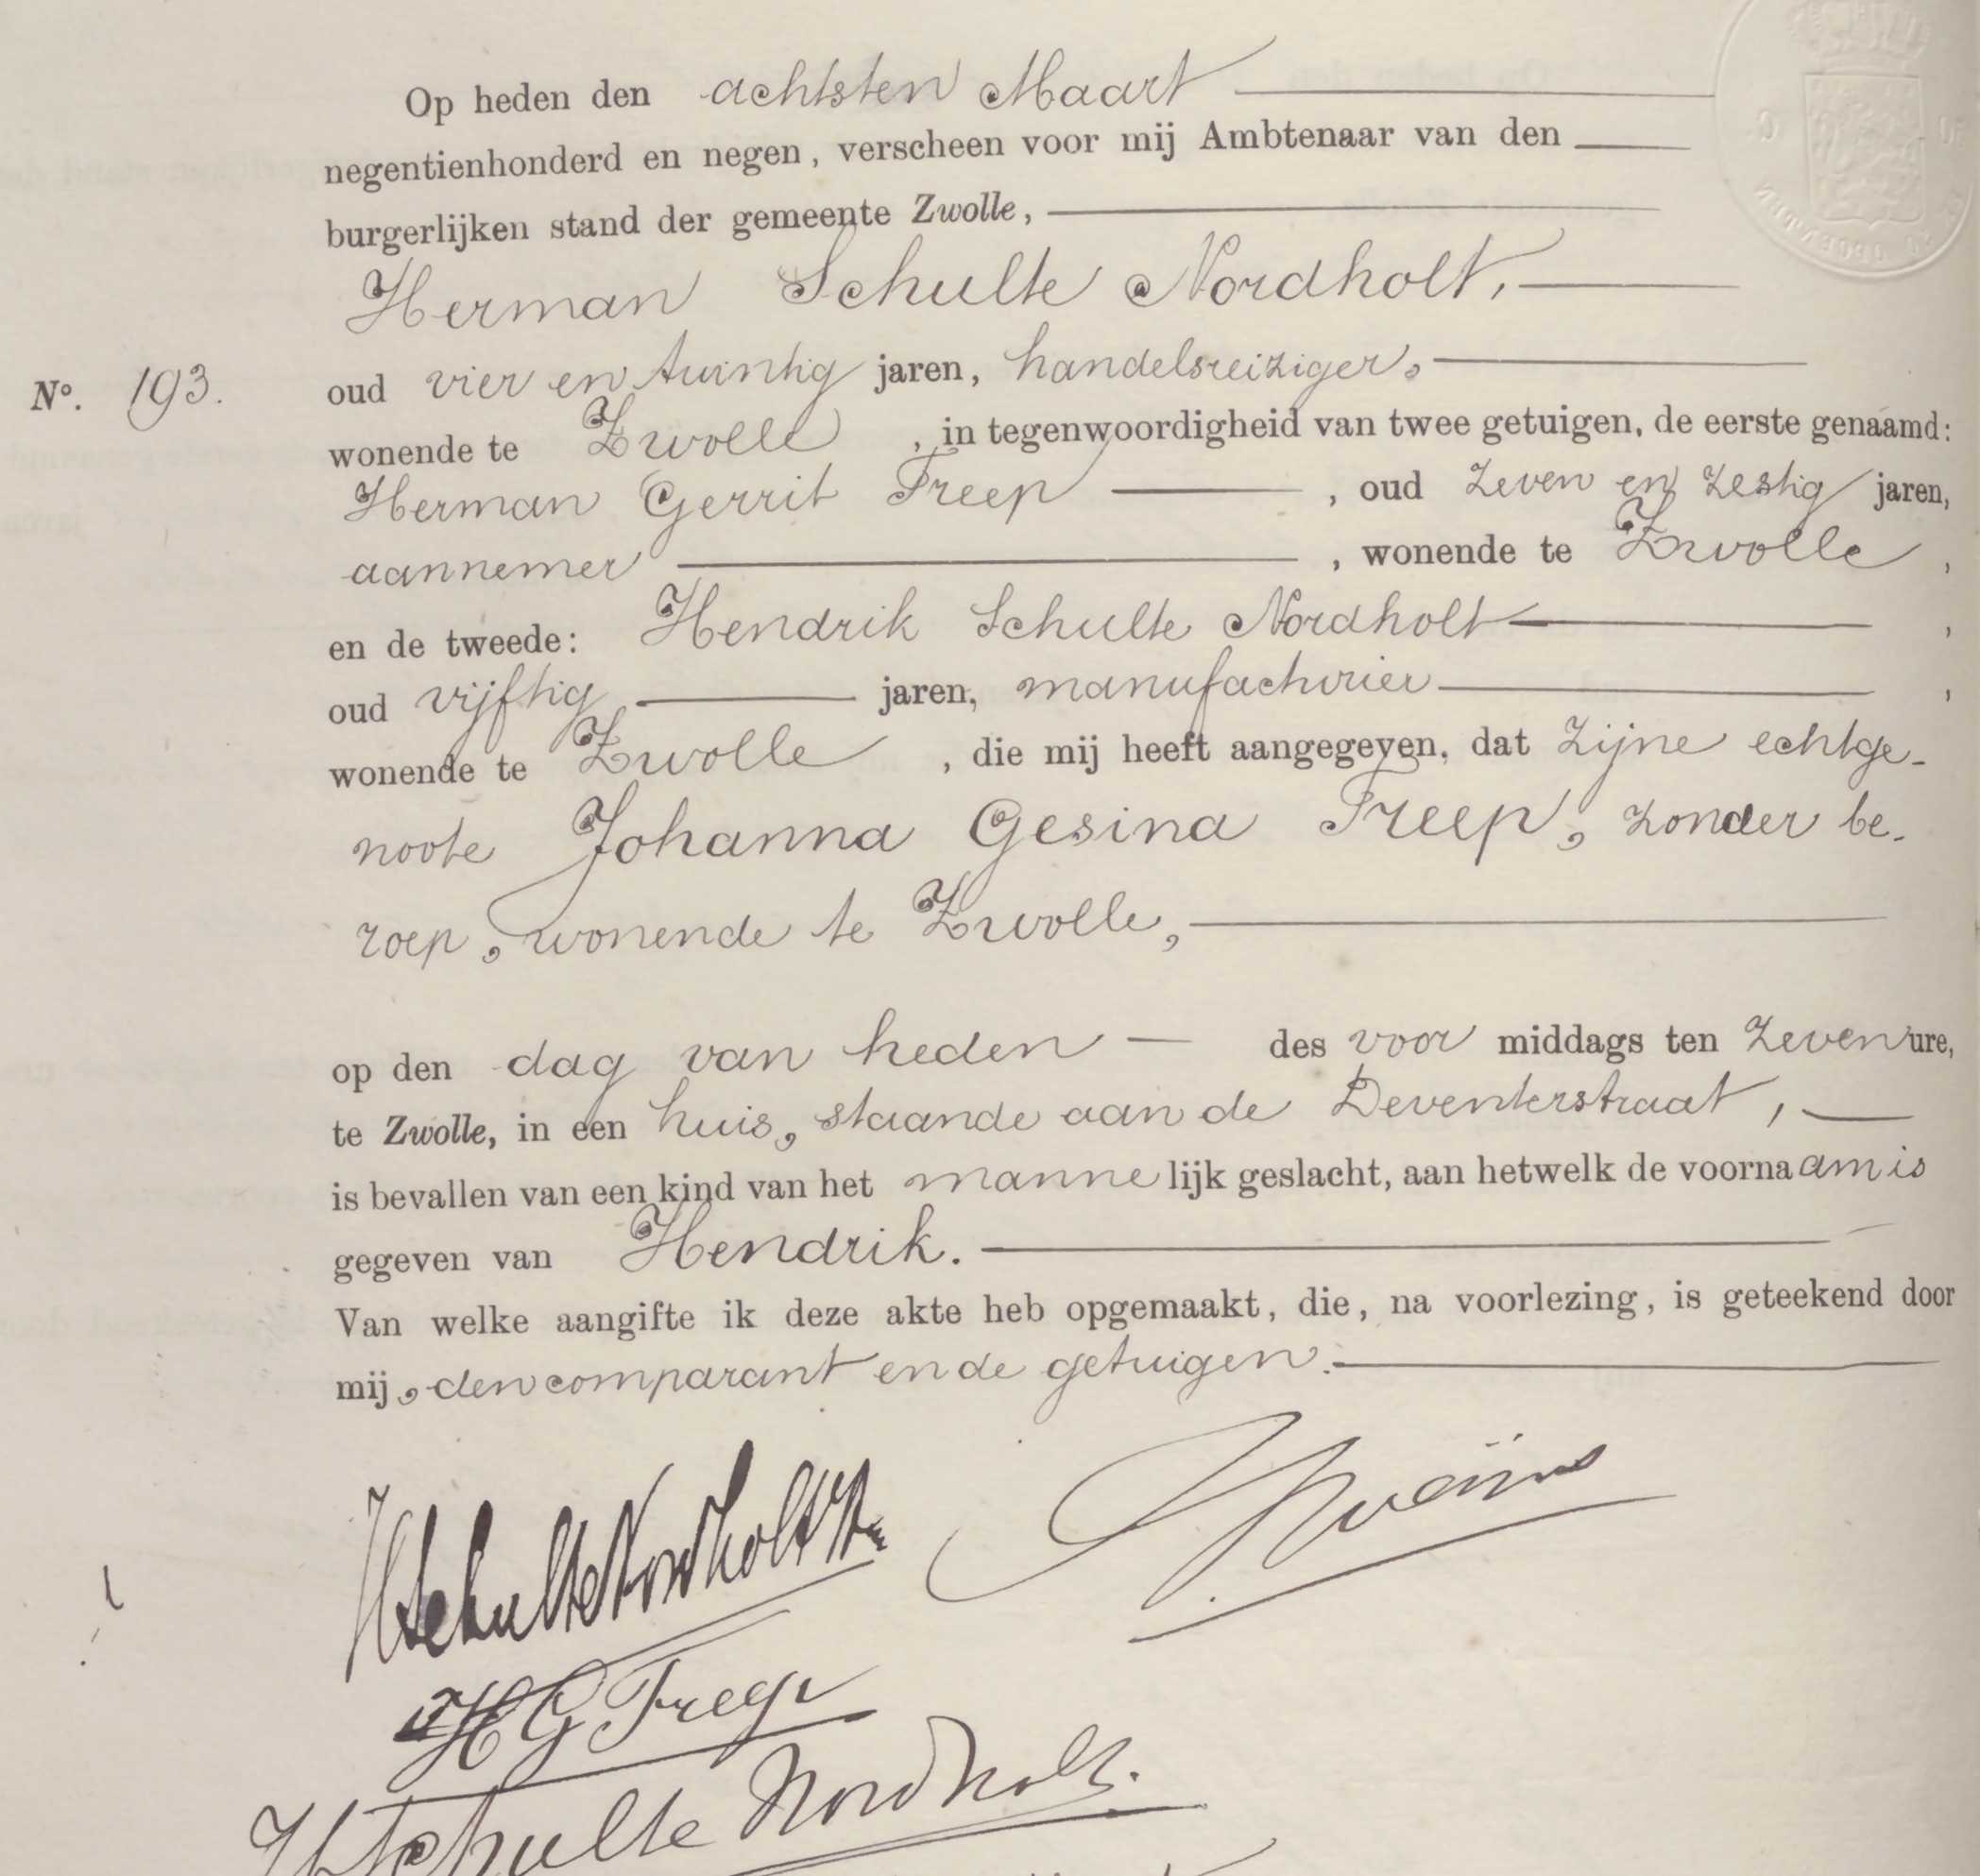 Op heden den achtsten Maart
negentienhonderd en negen, verscheen voor mij Ambtenaar van den
burgerlijken stand der gemeente Zwolle,
Herman Schulte Nordholt,
No. 193.
oud vier en twintig jaren, handelsreiziger,
wonende te Zwolle, in tegenwoordigheid van twee getuigen, de eerste genaamd:
Herman Gerrit Freep, oud zeven en zestig jaren,
aannemer, wonende te Zwolle,
en de tweede: Hendrik Schulte Nordholt,
oud vijftig jaren, manufacturier,
wonende te Zwolle, die mij heeft aangegeven, dat zijne echtge-
noote Johanna Gesina Freep, zonder be-
roep, wonende te Zwolle,
op den dag van heden des voor middags ten zeven ure,
te Zwolle, in een huis, staande aan de Deventerstraat,
is bevallen van een kind van het mannelijk geslacht, aan hetwelk de voornaam is
gegeven van Hendrik.
Van welke aangifte ik deze akte heb opgemaakt, die, na voorlezing, is geteekend door
mij, den comparant en de getuigen.
HSchulteNordholt
HG Freep
HSchulte Nordholt.